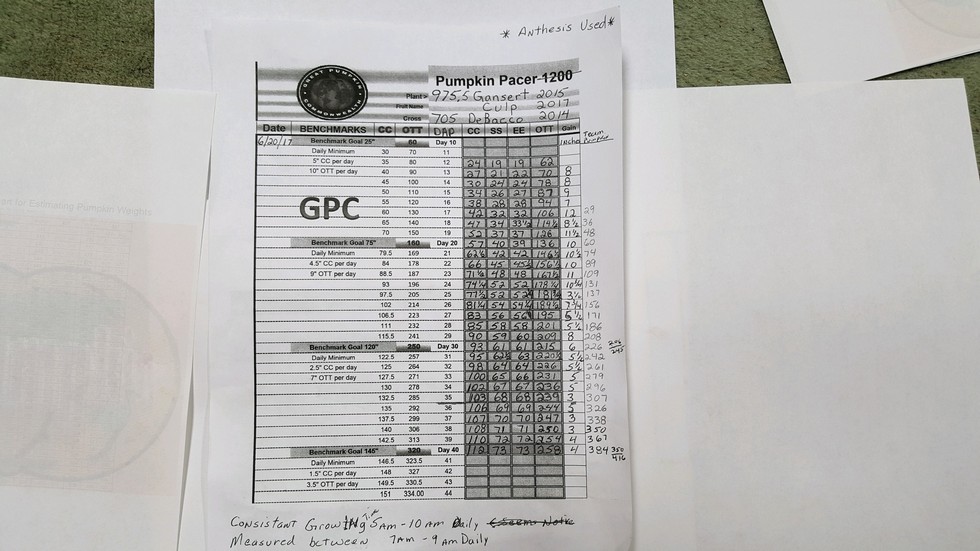 * Anthesis Used *
GREAT PUMPKIN COMMONWEALTH
Pumpkin Pacer-1200
Plant > 975.5 Gansert 2015
Fruit Name Culp 2017
Cross 705 DeBacco 2014
Date BENCHMARKS CC OTT DAP CC SS EE OTT Gain Inches Team Pumpkin
6/20/17 Benchmark Goal 25" 60 Day 10
Daily Minimum 30 70 11
5" CC per day 35 80 12 24 19 19 62
10" OTT per day 40 90 13 27 21 22 70 8
45 100 14 30 24 24 78 8
50 110 15 34 26 27 87 9
55 120 16 38 28 28 94 7
60 130 17 42 32 32 106 12 29
65 140 18 47 34 33½ 114½ 8½ 36
70 150 19 52 37 37 126 11½ 48
GPC
Benchmark Goal 75" 160 Day 20 57 40 39 136 10 60
Daily Minimum 79.5 169 21 62½ 42 42 146½ 10½ 74
4.5" CC per day 84 178 22 66 45 45½ 156½ 10 89
9" OTT per day 88.5 187 23 71½ 48 48 167½ 11 109
93 196 24 74¼ 52 52 178¼ 10¾ 131
97.5 205 25 77½ 52 52 137
102 214 26 81¼ 54 54¼ 189½ 156
106.5 223 27 83 56 56 195 5½ 171
111 232 28 85 58 58 201 5½ 186
115.5 241 29 90 59 60 209 8 208
Benchmark Goal 120" 250 Day 30 93 61 61 215 6 226
Daily Minimum 122.5 257 31 95 62½ 63 220½ 5½ 242
2.5" CC per day 125 264 32 98 64 64 226 5½ 261
7" OTT per day 127.5 271 33 100 65 66 231 5 279
130 278 34 102 67 67 236 5 296
132.5 285 35 103 68 68 239 3 307
135 292 36 106 69 69 244 5 326
137.5 299 37 107 70 70 247 3 338
140 306 38 108 71 71 250 3 350
142.5 313 39 110 72 72 254 4 367
Benchmark Goal 145" 320 Day 40 112 73 73 258 4 384 350 416
Daily Minimum 146.5 323.5 41
1.5" CC per day 148 327 42
3.5" OTT per day 149.5 330.5 43
151 334.00 44
Consistant Growing Tip 5am - 10 am Daily
Measured between 7am - 9 am Daily
en for Estimating Pumpkin Weights